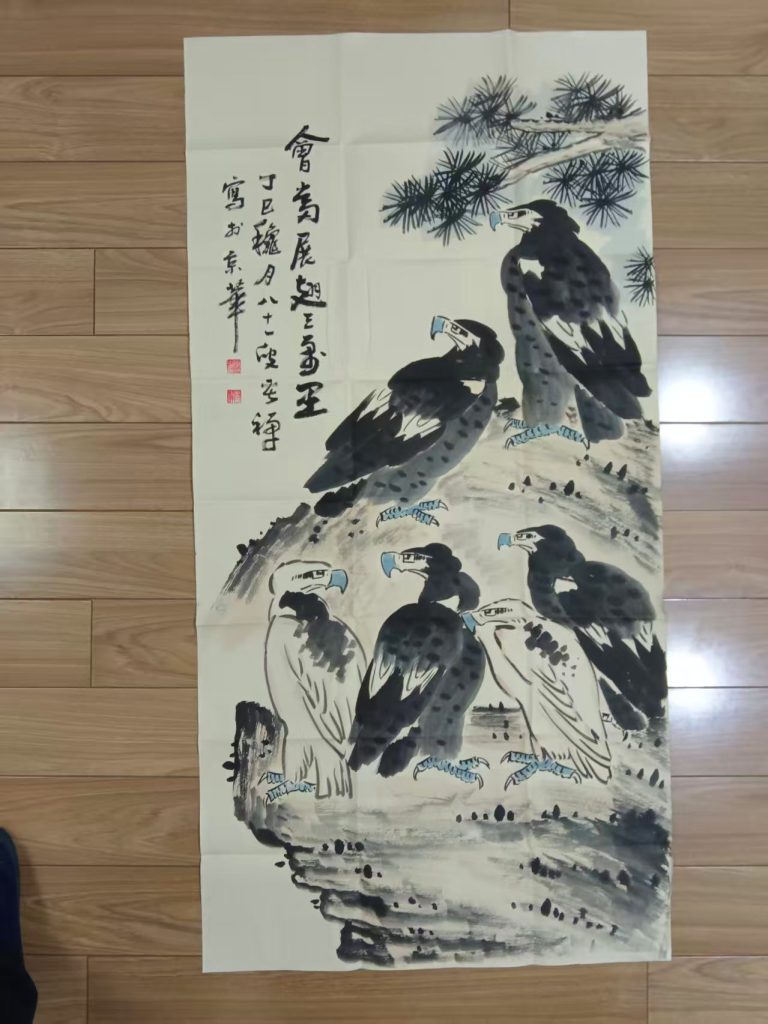 會當展翅三萬里
丁巳穐月八十一叟苦禪
寫於京華